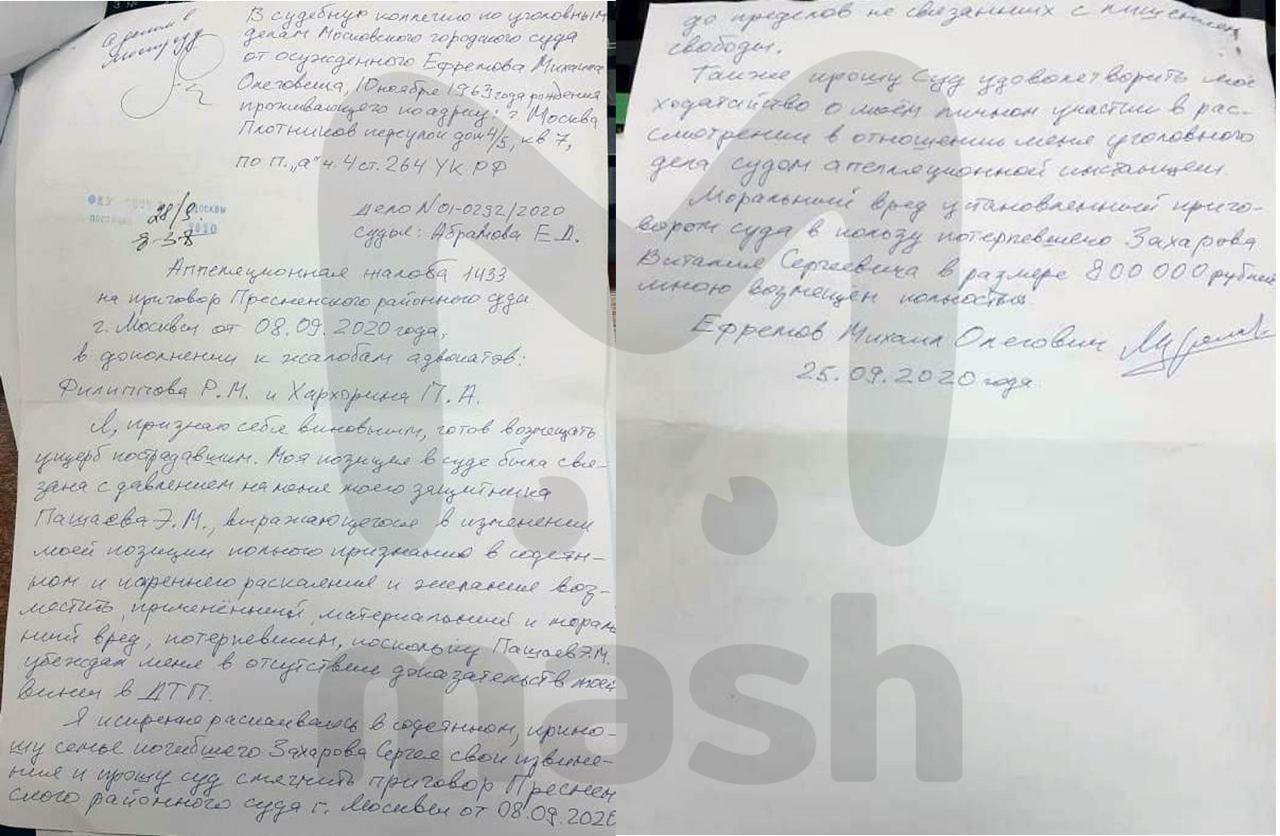 В судебную коллегию по уголовным
делам Московского городского суда
от осужденного Ефремова Михаила
Олеговича, 10 ноября 1963 года рождения
проживающего по адресу: г. Москва
Плотников переулок дом 4/5, кв 7,
по п. „а" ч. 4 ст. 264 УК РФ
28/9.
Москвы
2020
Дело № 01-0292/2020
судья: Абрамова Е.Д.
Аппеляционная жалоба 1433
на приговор Пресненского районного суда
г. Москвы от 08.09.2020 года,
в дополнении к жалобам адвокатов:
Филиппова Р.М. и Хархорина П.А.
Я, признаю себя виновным, готов возмещать
ущерб пострадавшим. Моя позиция в суде была свя-
зана с давлением на меня моего защитника
Пашаева Э.М., выражающегося в изменении
моей позиции полного признанию в содеян-
ном и искреннего раскаяния и желания воз-
местить, применённый, материальный и мораль
ный вред, потерпевшим, поскольку Пашаев Э.М.
убеждал меня в отсутствии доказательств моей
вины в ДТП.
Я искренне раскаиваюсь в содеянном, прино-
шу семье погибшего Захарова Сергея свои извине-
ния и прошу суд смягчить приговор Преснен
ского районного суда г. Москвы от 08.09.2020
до пределов не связанных с лишением
свободы.
Также прошу Суд удовлетворить мое
ходатайство о моём личном участии в рас-
смотрении в отношении меня уголовного
дела судом апелляционной инстанции.
Моральный вред установленный приго-
вором суда в пользу потерпевшего Захарова
Виталия Сергеевича в размере 800 000 рублей
мною возмещен полностью.
Ефремов Михаил Олегович
25.09.2020 года.
mash